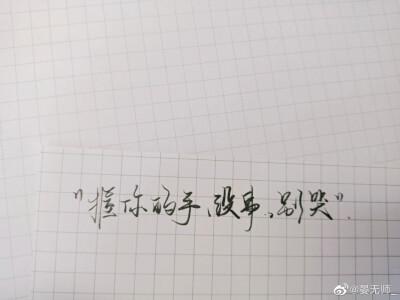 "握你的手、没事、别哭".
@晏无师_